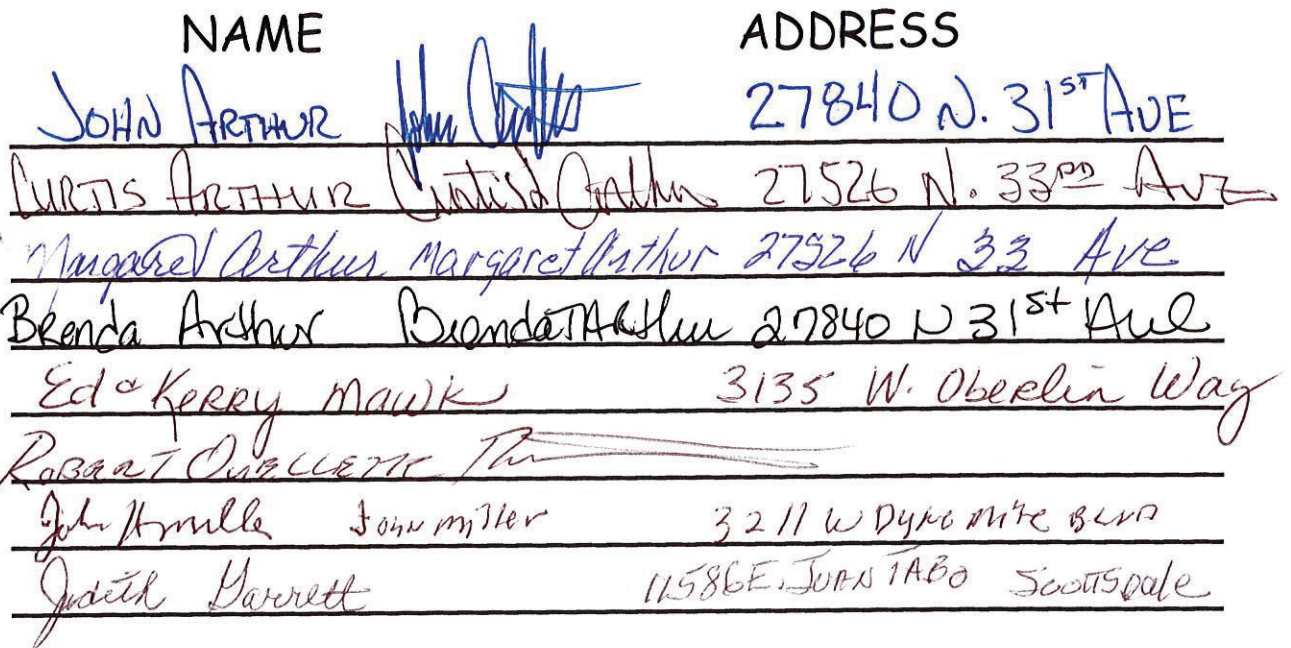 NAME ADDRESS
JOHN ARTHUR John Arthur 27840 N. 31ST AVE
CURTIS ARTHUR Curtis Arthur 27526 N. 33RD AVE
Margaret Arthur Margaret Arthur 27526 N 33 Ave
Brenda Arthur Brenda T Arthur 27840 N 31st Ave
Ed & Kerry Mawk 3135 W. Oberlin Way
ROBERT OUELLETTE
John H Miller John Miller 3211 W Dynamite BLVD
Judith Garrett 11586 E. JUAN TABO Scottsdale